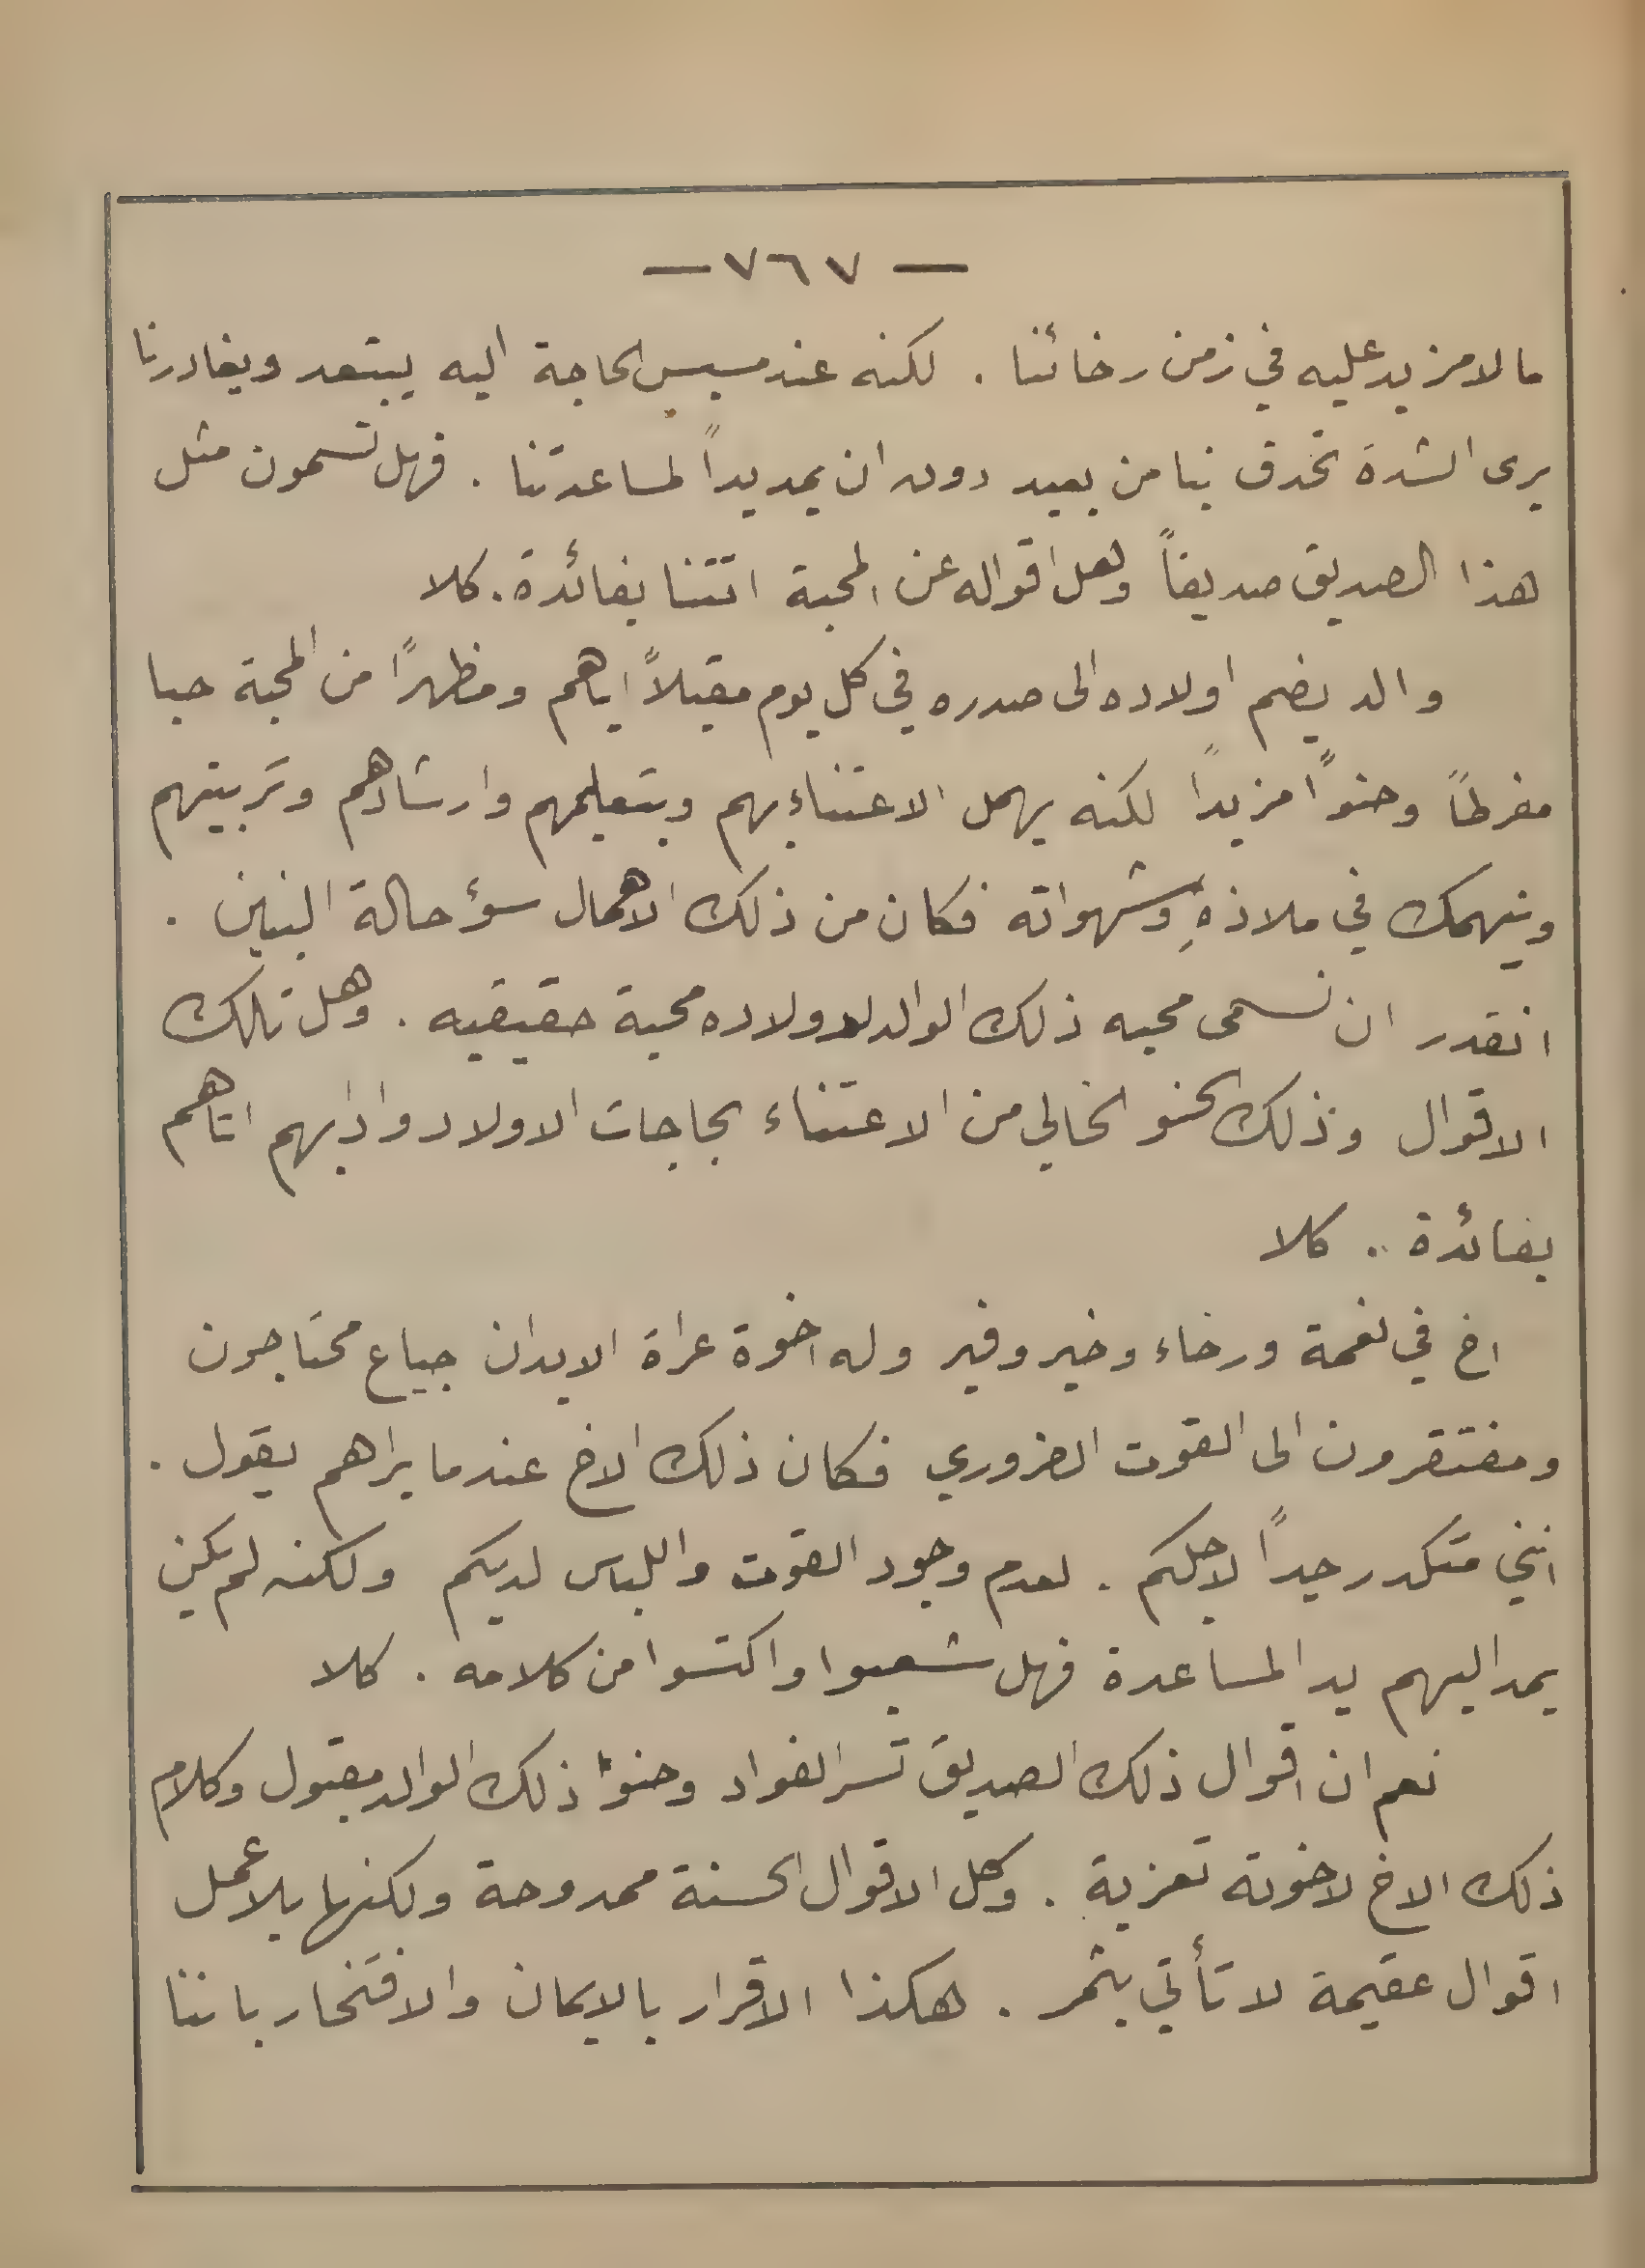 — ٧٦٧ —
ما لا مزيد عليه في زمن رخائنا . لكنه عند مسيس الحاجة اليه يبتعد ويغادرنا
يرى الشدة تحدق بنا من بعيد دون ان يمد يداً لمساعدتنا . فهل تسمون مثل
هذا الصديق صديقاً وهل اقواله عن المحبة اتتنا بفائدة . كلا
والد يضم اولاده الى صدره في كل يوم مقبلاً اياهم ومظهرًا من المحبة حبا
مفرطاً وحنوًا مزيدًا لكنه يهمل الاعتناء بهم وبتعليمهم وارشادهم وتربيتهم
وينهمك في ملاذهِ وشهواته فكان من ذلك الاهمال سؤ حالة البنين .
انقدر ان نسمى محبه ذلك الوالد لاولاده محبة حقيقيه . وهل تلك
الاقوال وذلك الحنو الخالي من الاعتناء بحاجات الاولاد وادابهم اتاهم
بفائدة .. كلا
اخ في نعمة ورخاء وخير وفير وله اخوة عراة الابدان جياع محتاجون
ومفتقرون الى القوت الضروري فكان ذلك الاخ عندما يراهم يقول .
انني متكدر جداً لاجلكم . لعدم وجود القوت واللباس لديكم ولكنه لم يكن
يمد اليهم يد المساعدة فهل شبعوا واكتسوا من كلامه . كلا
نعم ان اقوال ذلك الصديق تسر الفواد وحنوّ ذلك الوالد مقبول وكلام
ذلك الاخ لاخوته تعزية . وكل الاقوال الحسنة ممدوحة ولكنها بلا عمل
اقوال عقيمة لا تأتي بثمر . هكذا الاقرار بالايمان والافتخار باننا